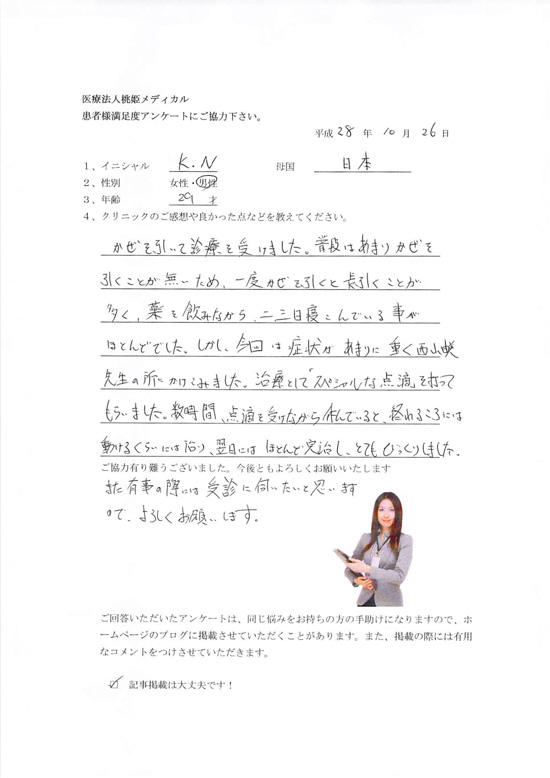 医療法人桃姫メディカル
患者様満足度アンケートにご協力下さい。
平成 28 年 10 月 26 日
1、イニシャル K.N 母国 日本
2、性別 女性・男性
3、年齢 29 才
4、クリニックのご感想や良かった点などを教えてください。
かぜを引いて診療を受けました。普段はあまりかぜを
引くことが無いため、一度かぜを引くと長引くことが
多く、薬を飲みながら、二三日寝こんでいる事が
ほとんどでした。しかし、今回は症状があまりに重く西山
先生の所にかけこみました。治療として「スペシャルな点滴」を打って
もらいました。数時間、点滴を受けながら休んでいると、終わるころには
動けるくらいには治り、翌日にはほとんど完治し、とてもびっくりしました。
ご協力有り難うございました。今後ともよろしくお願いいたします
また有事の際には受診に伺いたいと思います
ので、よろしくお願いします。
ご回答いただいたアンケートは、同じ悩みをお持ちの方の手助けになりますので、ホ
ームページのブログに掲載させていただくことがあります。また、掲載の際には有用
なコメントをつけさせていただきます。
☑ 記事掲載は大丈夫です！